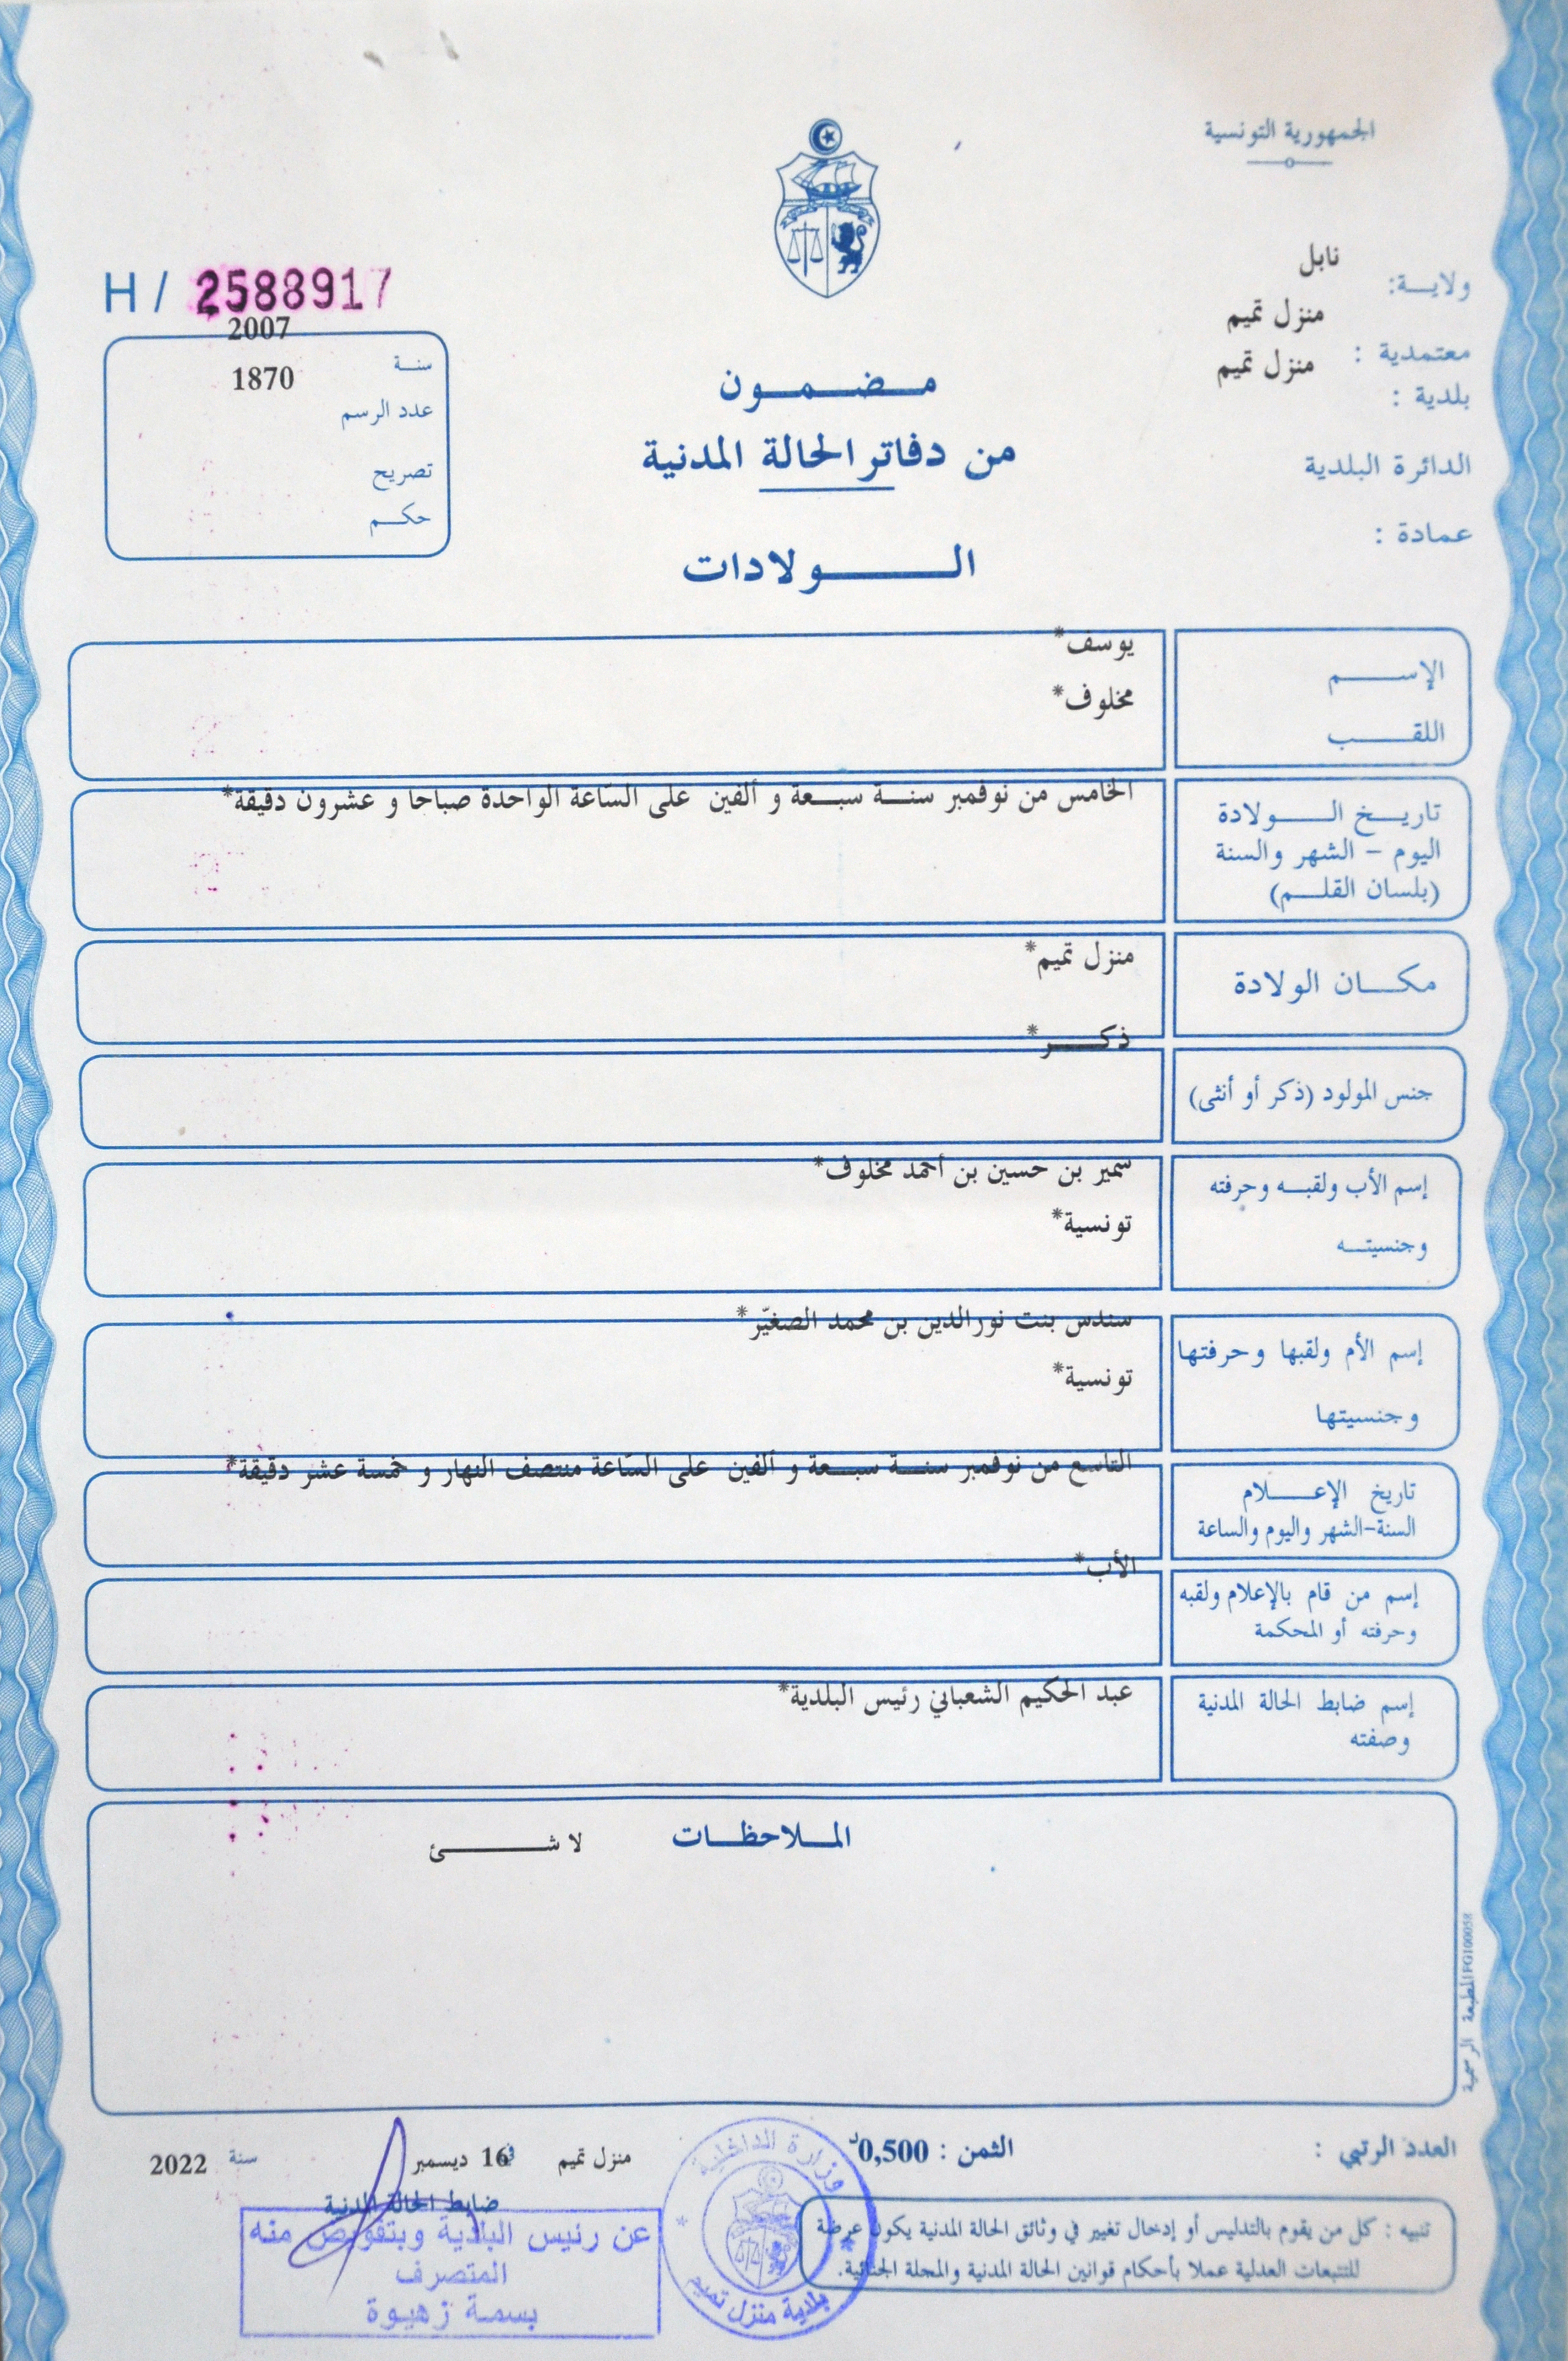 الجمهورية التونسية
ولايـــة: نابل
معتمدية : منزل تميم
بلدية : منزل تميم
الدائرة البلدية
عمادة :
H / 2588917
سنــة 2007
عدد الرسم 1870
تصريح
حكــم
مــضــمــون
من دفاتر الحالة المدنية
الــــولادات
الإســــم يوسف*
اللقــــب مخلوف*
تاريــخ الــــولادة
اليوم - الشهر والسنة
(بلسان القلــم)
الخامس من نوفمبر سنــة سبــعة و ألفين على السّاعة الواحدة صباحا و عشرون دقيقة*
مكــان الولادة منزل تميم*
جنس المولود (ذكر أو أنثى) ذكــــر*
إسم الأب ولقبــه وحرفته سمير بن حسين بن أحمد مخلوف*
وجنسيتــه تونسية*
إسم الأم ولقبها وحرفتها سندس بنت نورالدين بن محمد الصغيّر*
وجنسيتها تونسية*
تاريخ الإعــــلام
السنة-الشهر واليوم والساعة
التاسع من نوفمبر سنــة سبــعة و ألفين على السّاعة منتصف النهار و خمسة عشر دقيقة*
إسم من قام بالإعلام ولقبه
وحرفته أو المحكمة
الأب*
إسم ضابط الحالة المدنية
وصفته
عبد الحكيم الشعباني رئيس البلدية*
المــلاحظــات
لا شـــــئ
المطبعة الرسمية FG100058
العدد الرتبي :
الثمن : 0,500د
منزل تميم في 16 ديسمبر سنة 2022
ضابط الحالة المدنية
عن رئيس البلدية وبتفويض منه
المتصرف
بسمة زهيوة
وزارة الداخلية
بلدية منزل تميم
تنبيه : كل من يقوم بالتدليس أو إدخال تغيير في وثائق الحالة المدنية يكون عرضة
للتتبعات العدلية عملا بأحكام قوانين الحالة المدنية والمجلة الجنائية.